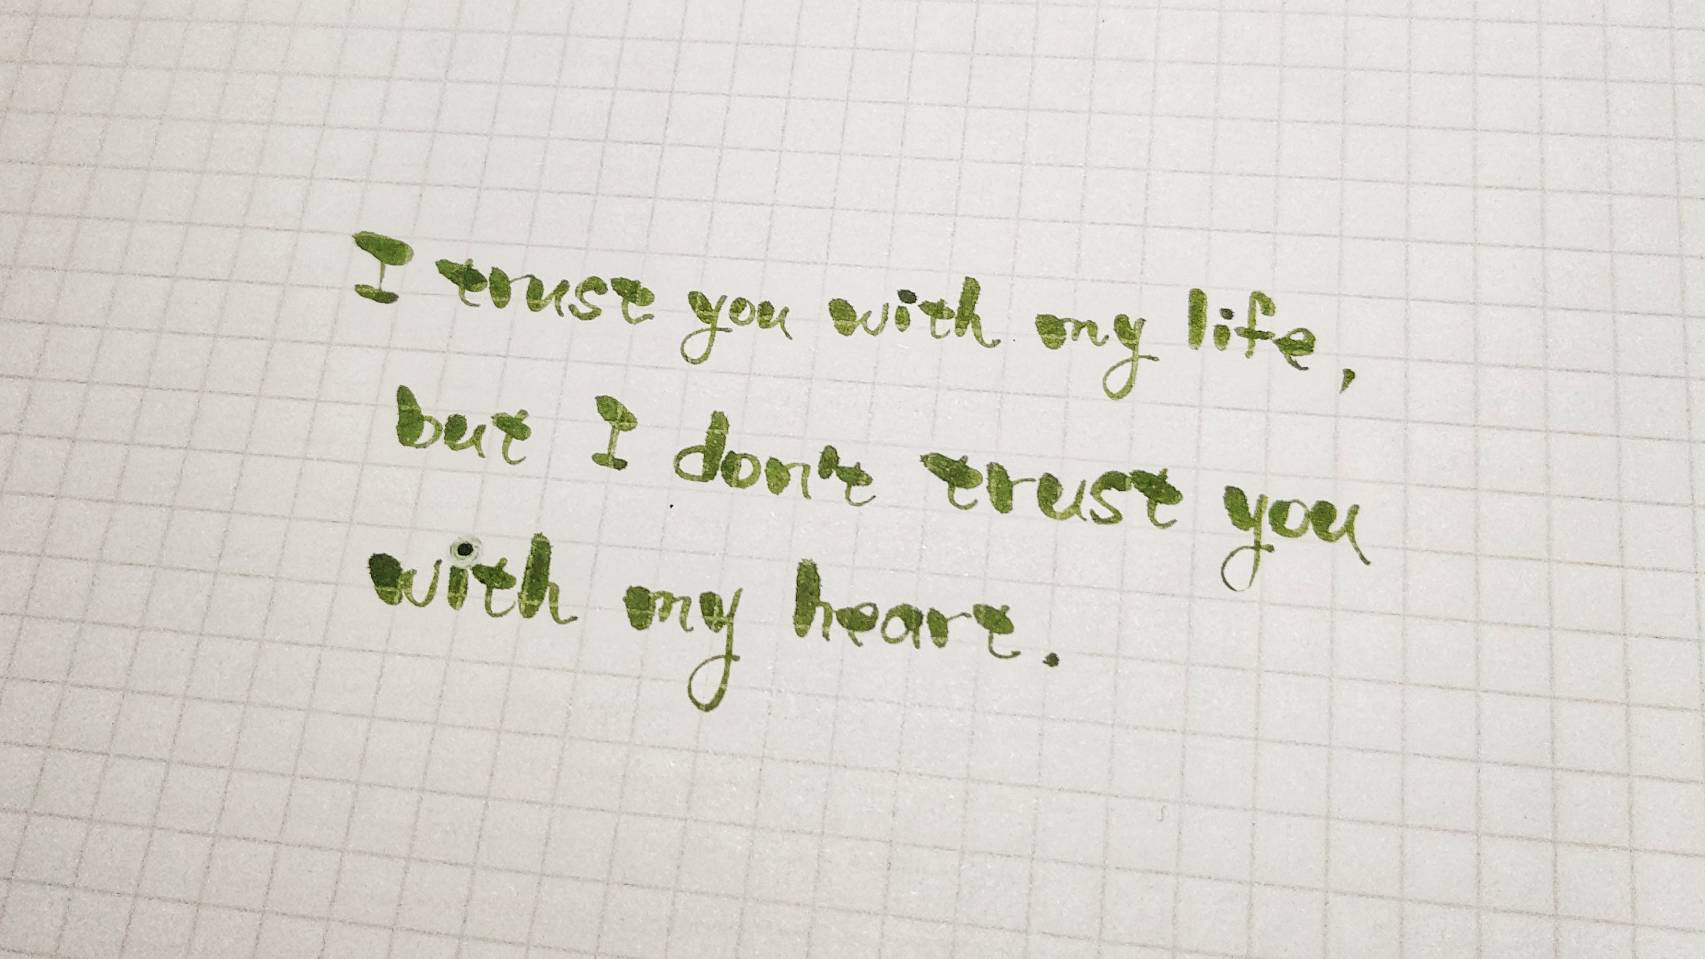 I trust you with my life,
but I don't trust you
with my heart.